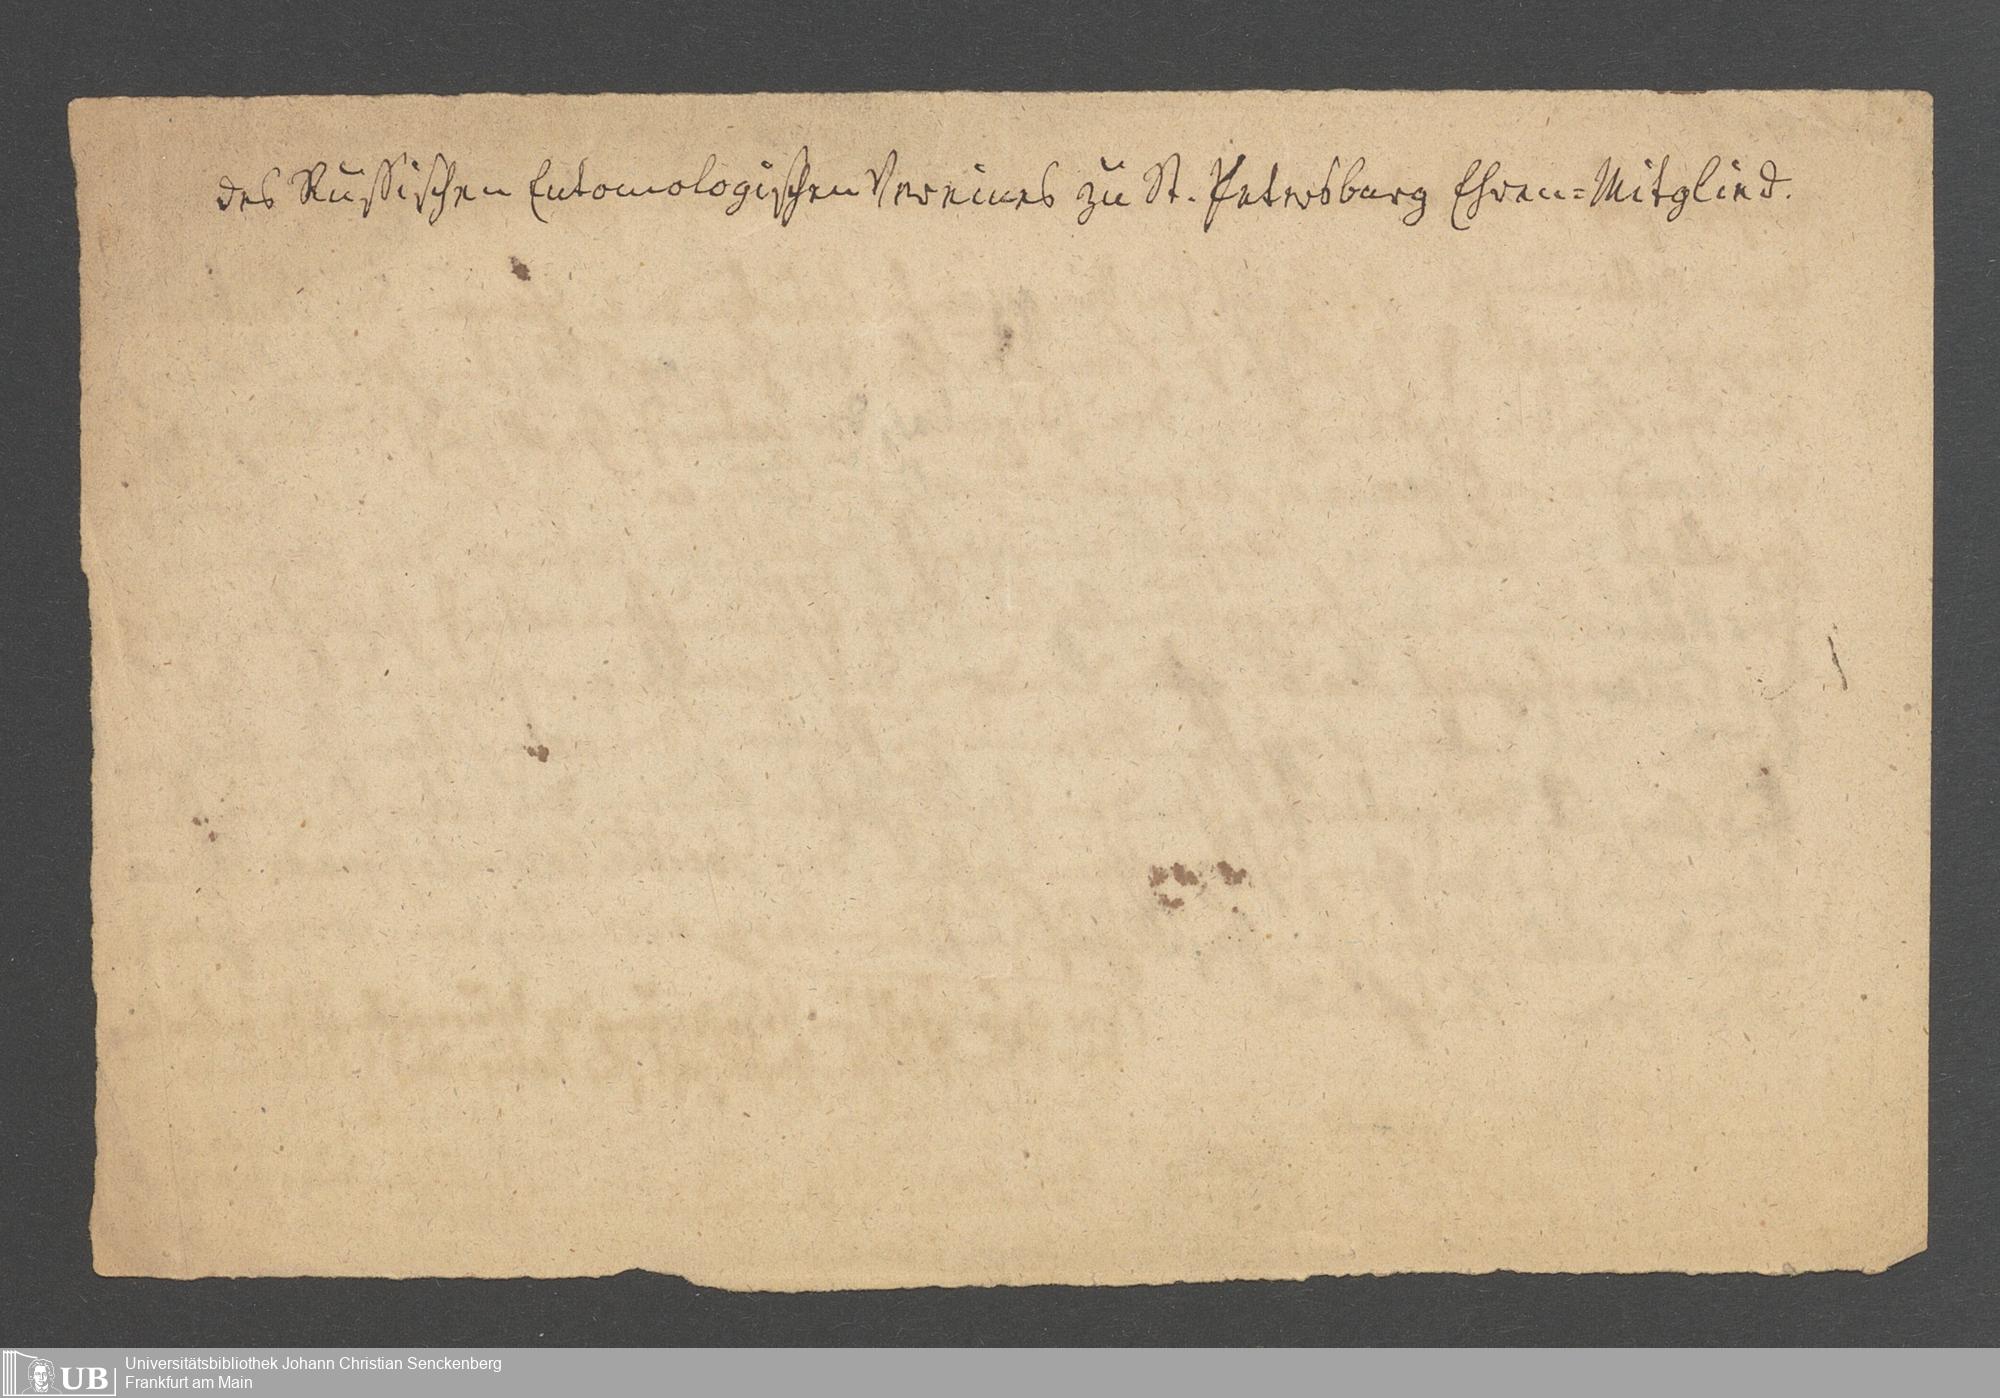 des Russischen Entomologischen Vereines zu St. Petersburg Ehren=Mitglied.
UB
Universitätsbibliothek Johann Christian Senckenberg
Frankfurt am Main